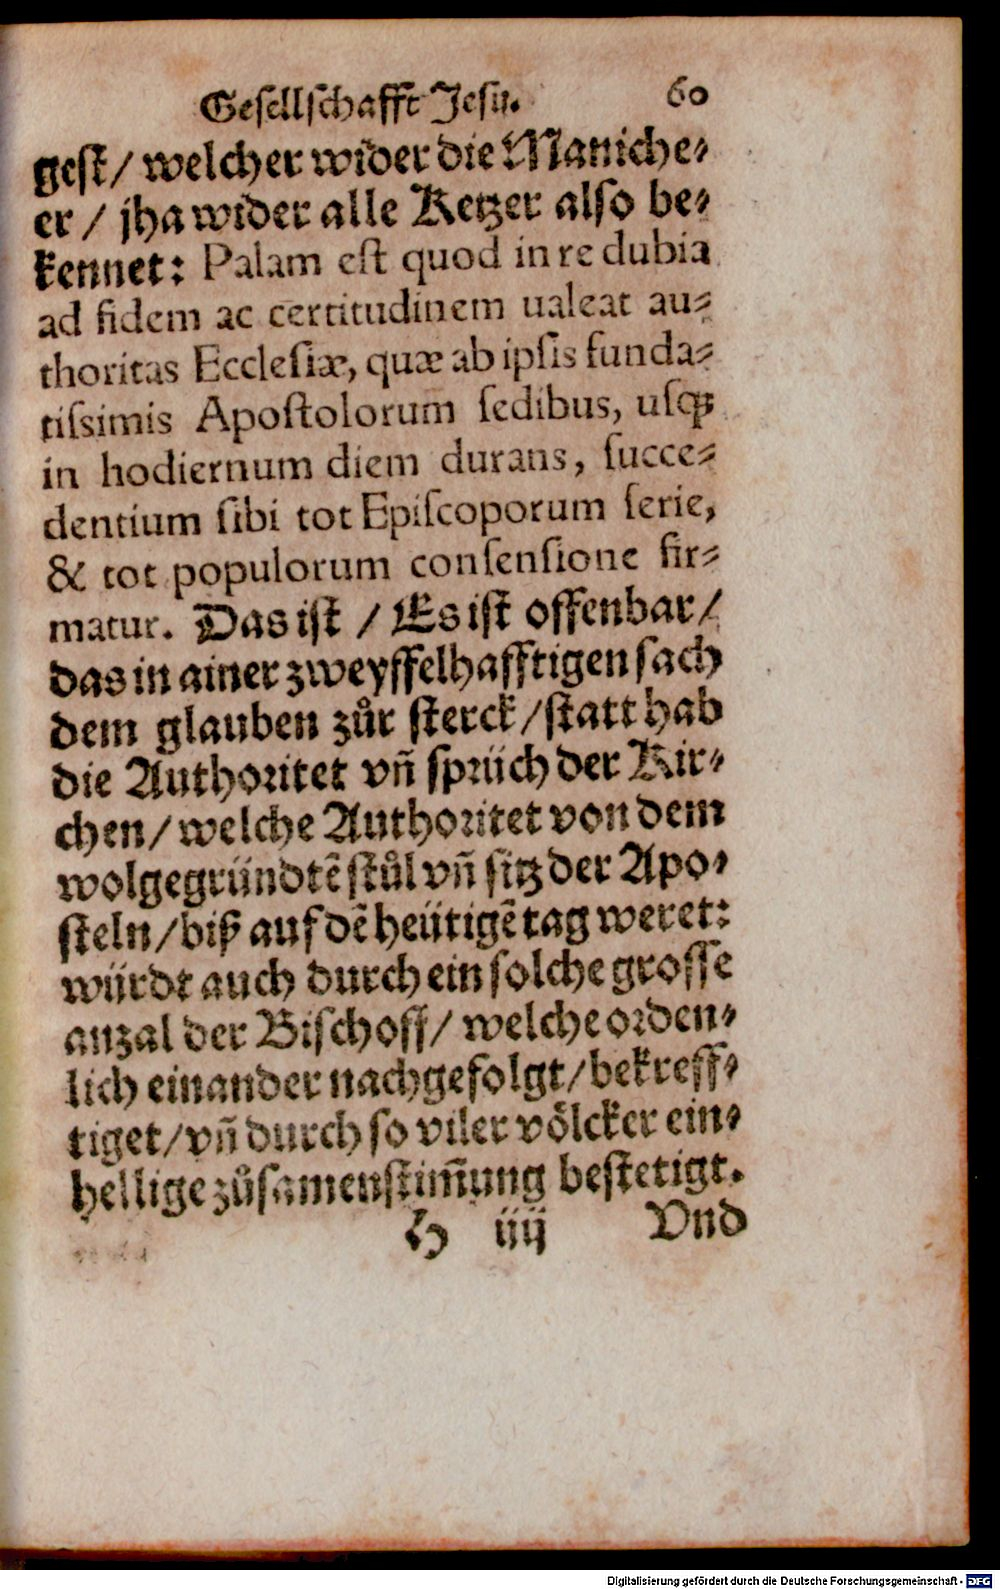 Gesellschafft Jesu. 60
gest / welcher wider die Maniche⸗
er / jha wider alle Ketzer also be⸗
kennet: Palam est quod in re dubia
ad fidem ac certitudinem ualeat au⸗
thoritas Ecclesiæ, quæ ab ipsis funda⸗
tissimis Apostolorum sedibus, usqꝫ
in hodiernum diem durans, succe⸗
dentium sibi tot Episcoporum serie,
& tot populorum consensione fir⸗
matur. Das ist / Es ist offenbar /
das in ainer zweyffelhafftigen sach
dem glauben zůr sterck / statt hab
die Authoritet vñ sprüch der Kir⸗
chen / welche Authoritet von dem
wolgegründtē stůl vñ sitz der Apo⸗
steln / biß auf dē heütigē tag weret:
würdt auch durch ein solche grosse
anzal der Bischoff / welche orden⸗
lich einander nachgefolgt / bekreff⸗
tiget / vñ durch so viler völcker ein⸗
hellige zůsamenstim̃ung bestetigt.
H iiij Vnd
Digitalisierung gefördert durch die Deutsche Forschungsgemeinschaft - DFG